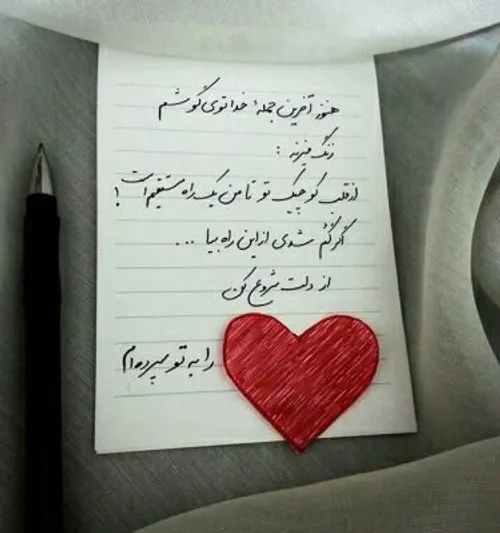 هنوز آخرین جملهٔ خدا توی گوشم
زنگ میزند :
از قلب کوچیک تو تا من یک راه مستقیم است !
اگر گم شدی از این راه بیا ...
از دلت شروع کن
را به تو سپرده ام